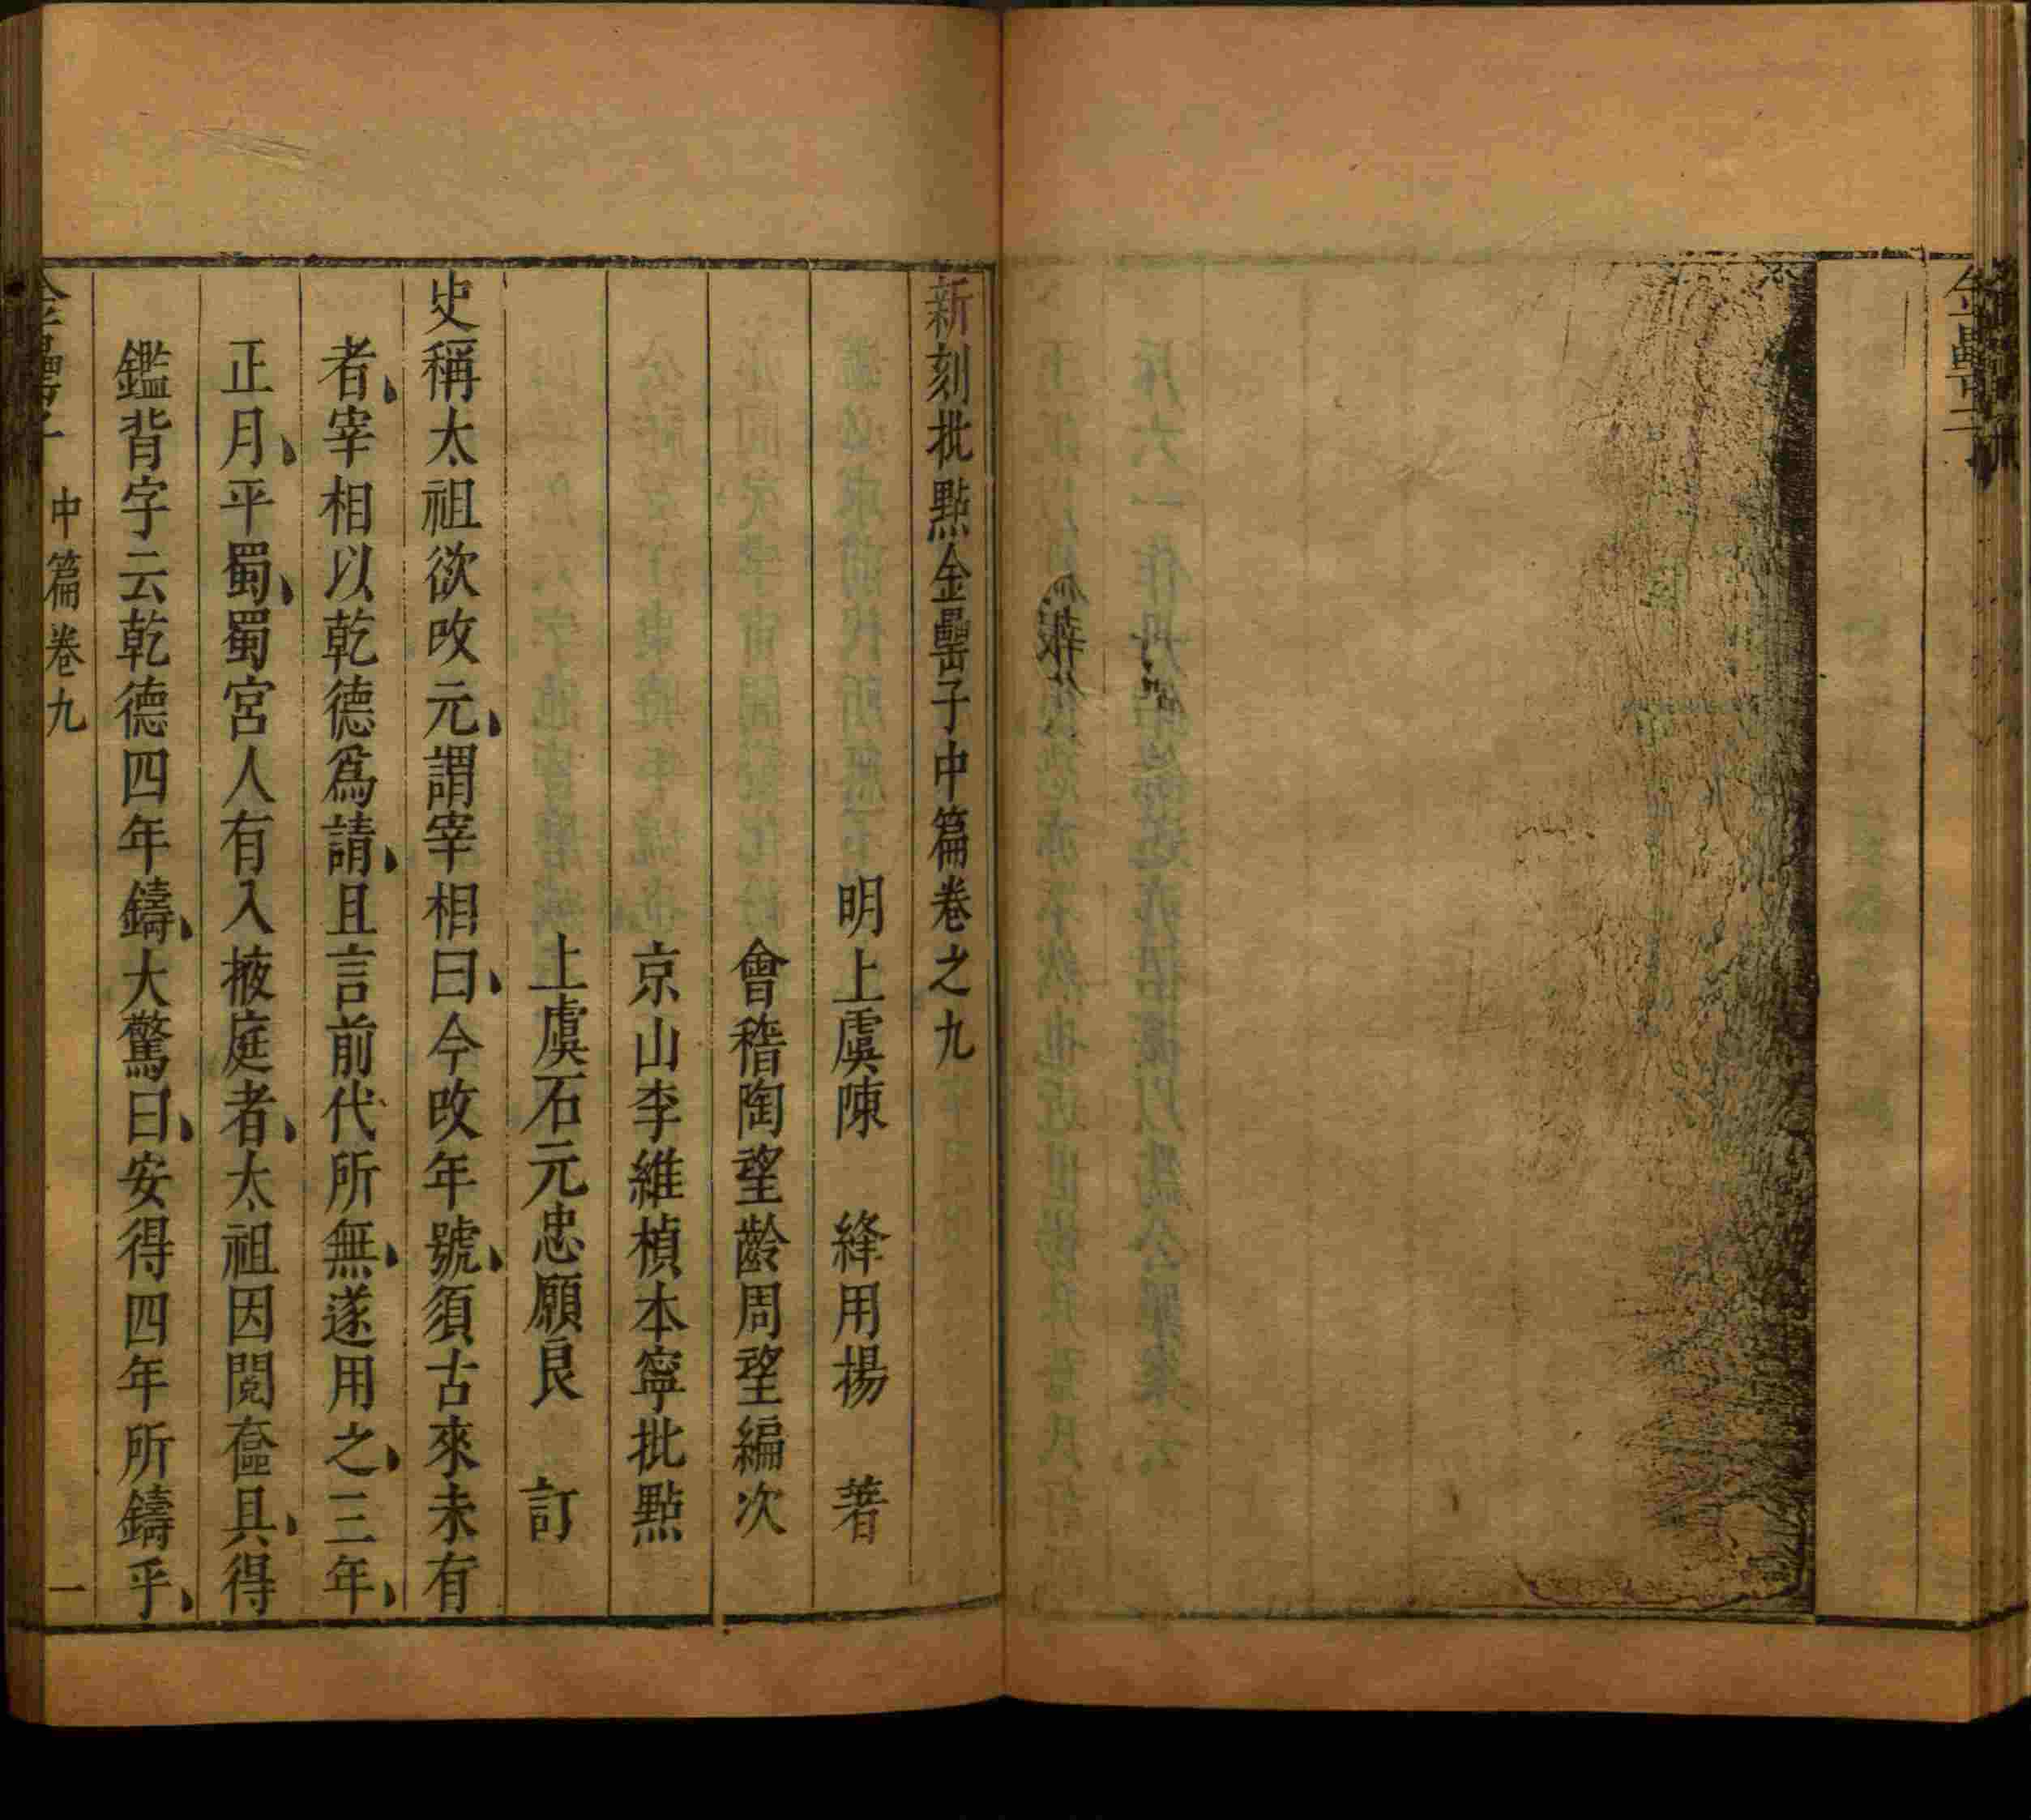 金罍子
新刻批點金罍子中篇卷之九
明上虞陳　絳用揚　著
會稽陶望齡周望編次
京山李維楨本寧批點
上虞石元忠愿良　訂
史稱太祖欲改元、謂宰相曰、今改年號、須古來未有
者、宰相以乾德爲請、且言前代所無、遂用之、三年、
正月、平蜀、蜀宮人有入掖庭者、太祖因閱奩具、得
鑑背字云乾德四年鑄、大驚曰、安得四年所鑄乎、
金罍子　中篇卷九　一